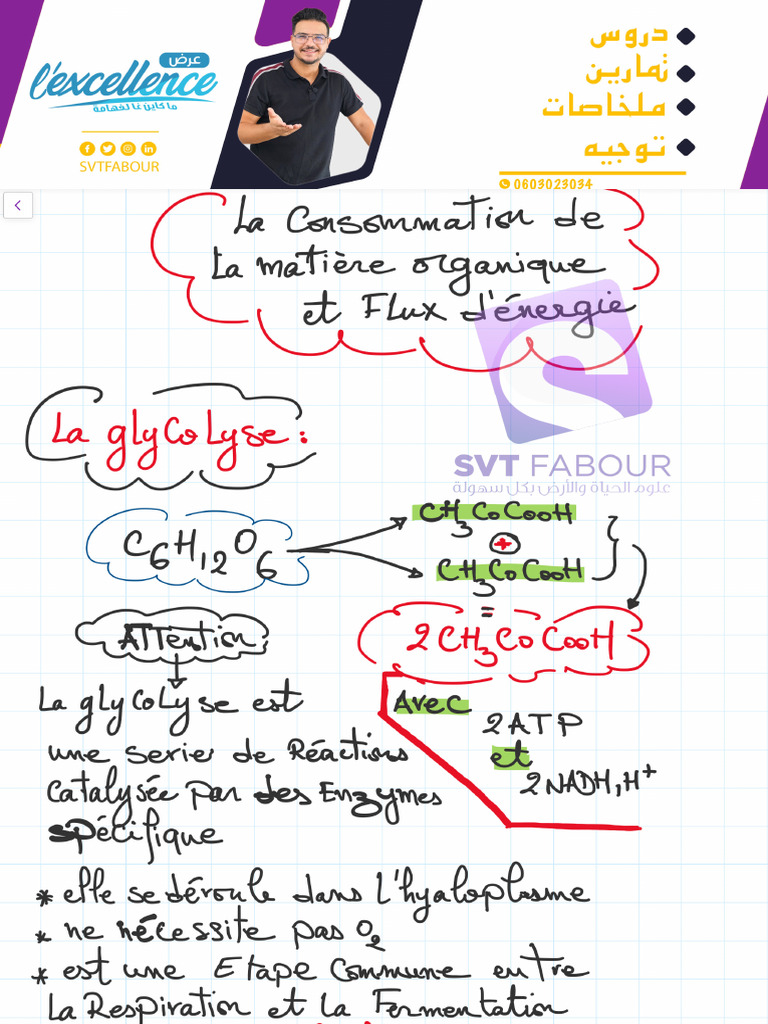 عرض
l'excellence
ماكاين غا لفهامة
SVTFABOUR
دروس
تمارين
ملخاصات
توجيه
0603023034
La Consommation de
La matière organique
et Flux d'énergie
SVT FABOUR
علوم الحياة والأرض بكل سهولة
La glycolyse:
C6H12O6
CH3CoCooH
+
CH3CoCooH
=
2CH3CoCooH
Avec
2ATP
et
2NADH,H+
ATTention
La glycolyse est
une serier de Réactions
Catalysée par des Enzymes
spécifique
* elle se déroule dans l'hyaloplasme
* ne nécessite pas O2
* est une Etape Commune entre
La Respiration et la Fermentation